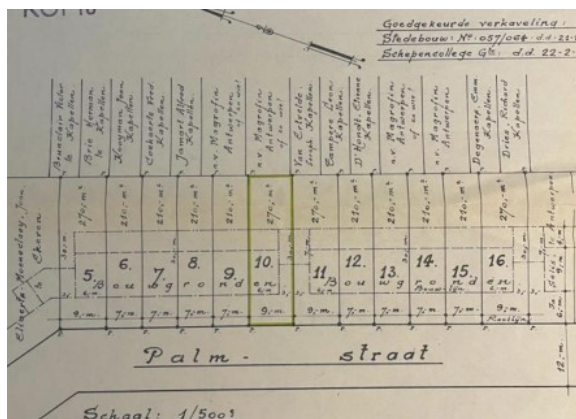 KOPIE
Goedgekeurde verkaveling:
Stedebouw: Nr. 057/064 d.d. 22-
Schepencollege Gtt: d.d. 22-2-
te Kapellen.
Brie Herman
te Kapellen.
Kooyman Jean
Kapellen.
Kapellen.
Jamart Alfred
Kapellen.
n.v. Magrofin
Antwerpen
of zo wie!
n.v. Magrofin
Antwerpen
of zo wie!
Van Estvelde
Joseph Kapellen.
Campers Leon
Kapellen.
D'Hondt. Etienne
Kapellen.
n.v. Magrofin
Antwerpen
n.v. Magrofin
Antwerpen
Degenaers, Emm.
Kapellen.
Dries, Richard
Kapellen.
270,-m²
210,-m²
210,-m²
210,-m²
210,-m²
270,-m²
270,-m²
210,-m²
210,-m²
210,-m²
210,-m²
270,-m²
te Ekeren.
5. 6. 7. 8. 9. 10. 11. 12. 13. 14. 15. 16.
Bouwgronden
Bouwgronden
Bouwlijn
9,-m. 7,-m. 7,-m. 7,-m. 7,-m. 9,-m. 9,-m. 7,-m. 7,-m. 7,-m. 7,-m. 9,-m.
Rooilijn
12,-m.
Palm - straat
Schaal: 1/500e